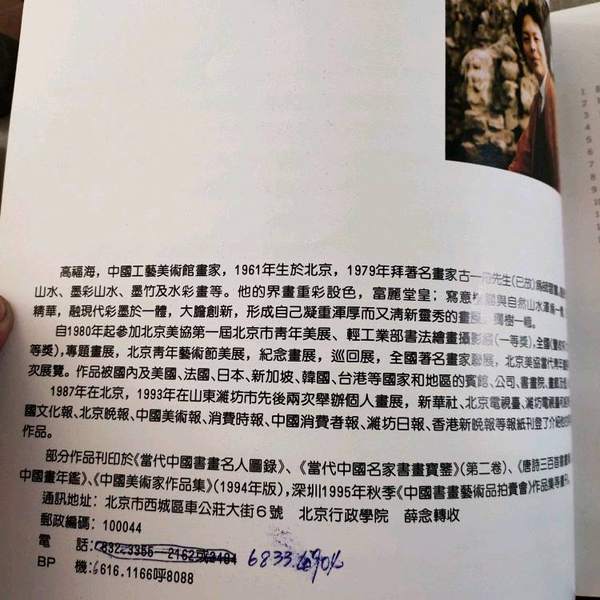 高福海，中國工藝美術館畫家，1961年生於北京，1979年拜著名畫家古一舟先生(已故)
山水、墨彩山水、墨竹及水彩畫等。他的界畫重彩設色，富麗堂皇；寫意 與自然山水渾
精華，融現代彩墨於一體，大膽創新，形成自己凝重渾厚而又清新靈秀的畫風，獨樹一幟。
自1980年起參加北京美協第一屆北京市靑年美展、輕工業部書法繪畫攝影 (一等獎)，全國
等獎)，專題畫展，北京靑年藝術節美展，紀念畫展，巡回展，全國著名畫家聯展，北京美協當代
次展覽。作品被國內及美國、法國、日本、新加坡、韓國、台港等國家和地區的賓館、公司、書畫院、
1987年在北京，1993年在山東濰坊市先後兩次舉辦個人畫展，新華社、北京電視臺、濰坊電視臺
國文化報、北京晚報、中國美術報、消費時報、中國消費者報、濰坊日報、香港新晚報等報紙刊登了介紹
作品。
部分作品刊印於《當代中國書畫名人圖錄》、《當代中國名家書畫寶鑒》(第二卷)、《唐詩三百首
中國畫年鑑》、《中國美術家作品集》(1994年版)，深圳1995年秋季《中國書畫藝術品拍賣會》作品集等畫
通訊地址：北京市西城區車公莊大街6號 北京行政學院 薛念轉收
郵政編碼：100044
電 話：
BP 機：6616.1166呼8088
1
2
3
4
5
6
7
8
9